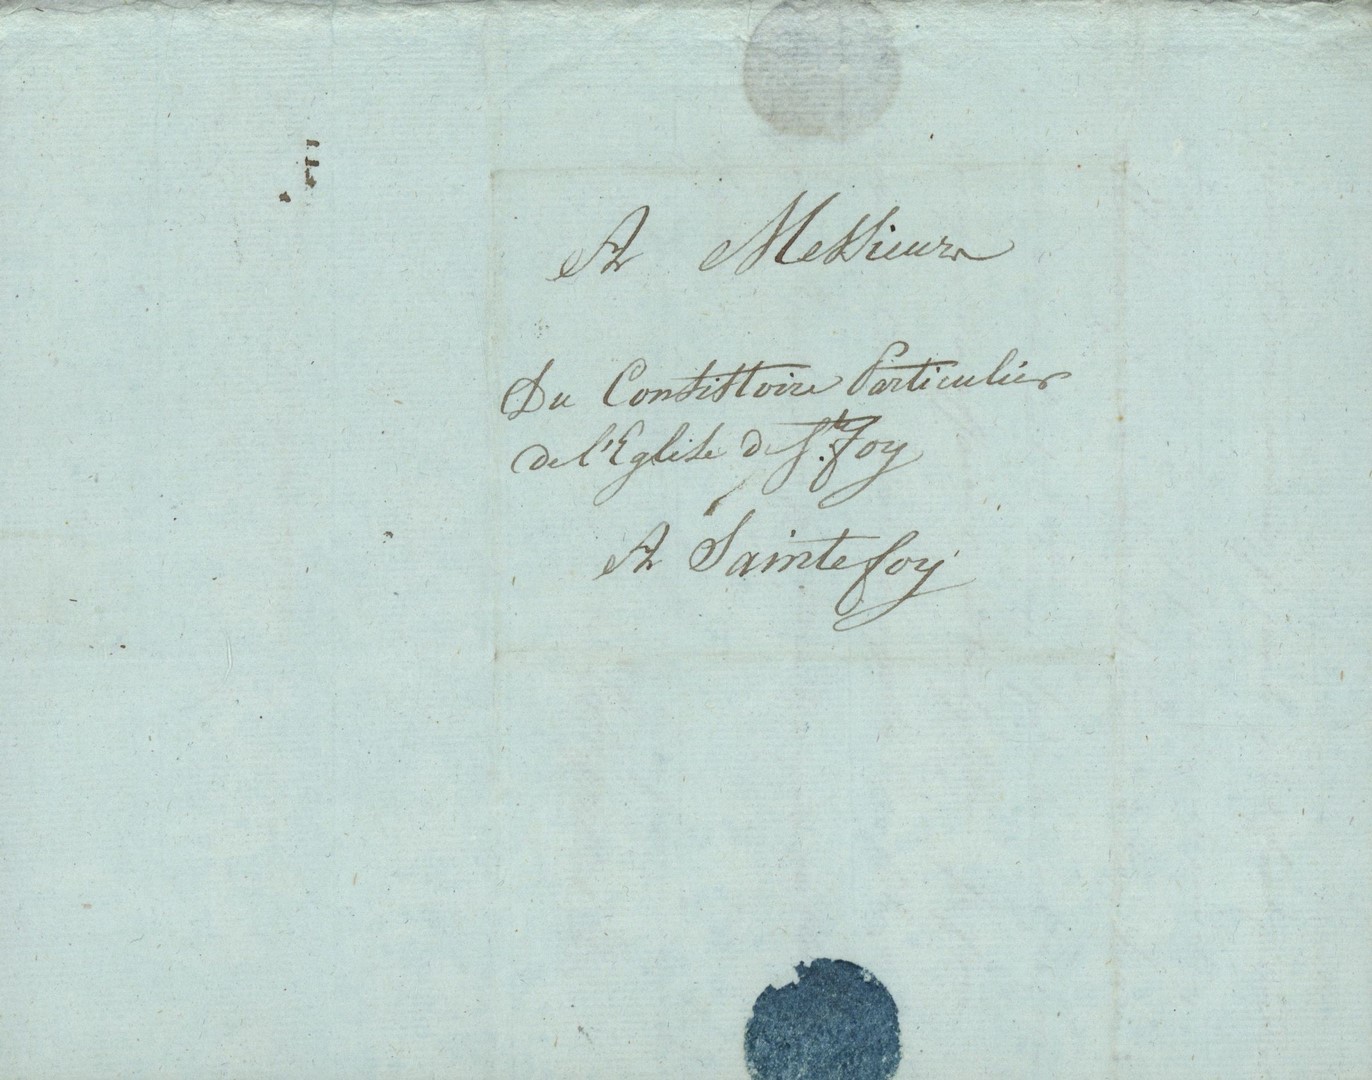 A Messieurs
Du Consistoire Particulier
de l'Eglise de Ste Foy
A Sainte foy